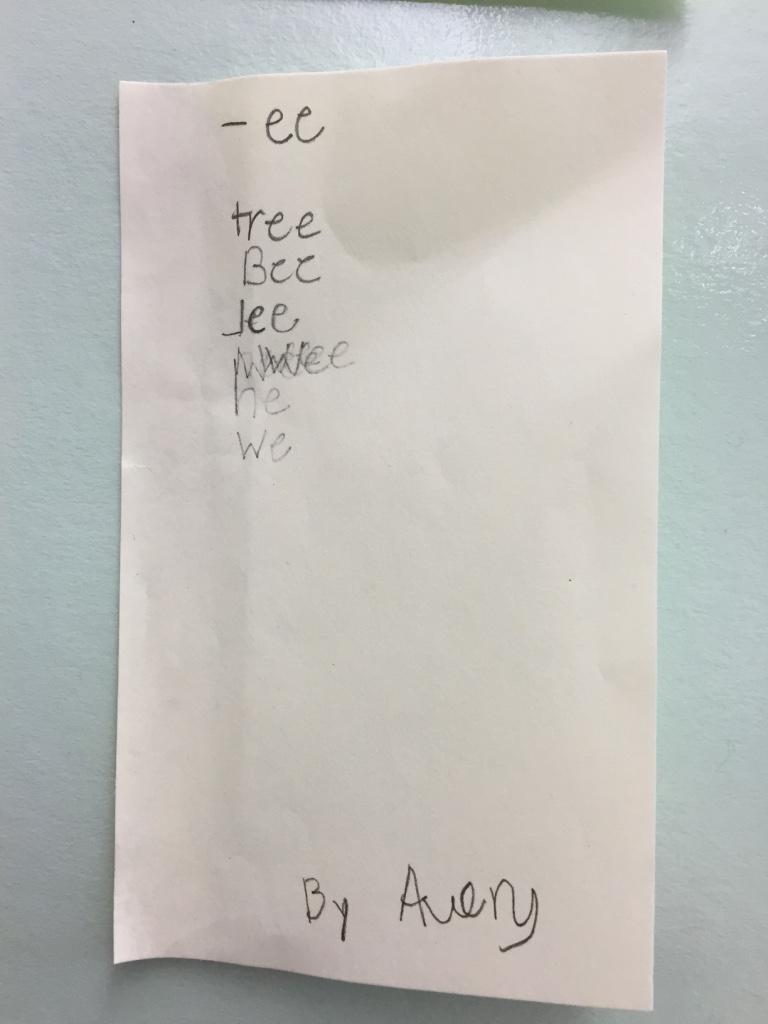 -ee
tree
Bee
lee
he
we
By Avery